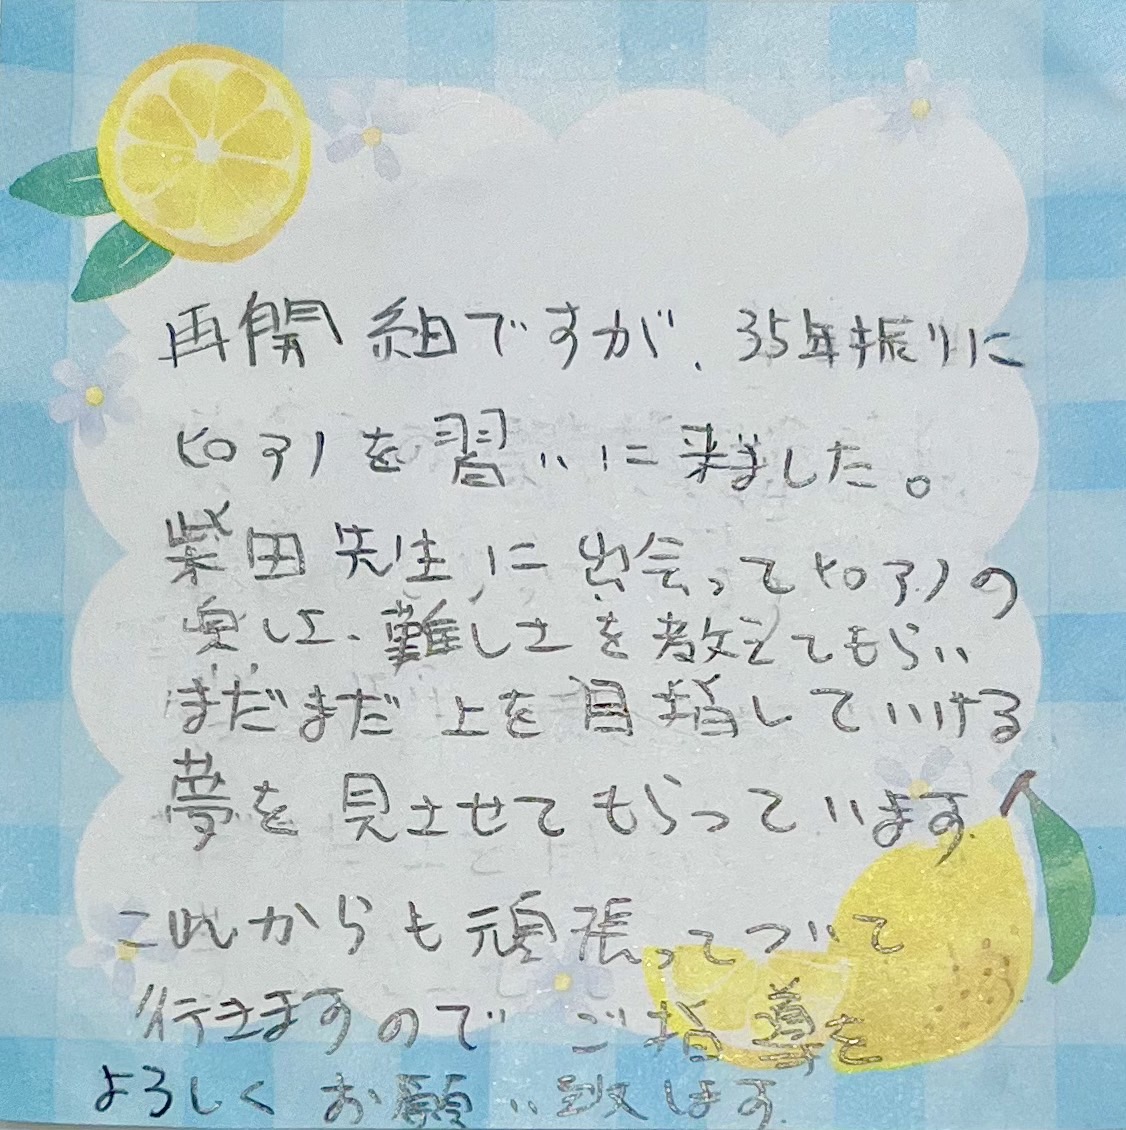 再開組ですが、35年振りに
ピアノを習いに来ました。
柴田先生に出会ってピアノの
楽しさ、難しさを教えてもらい
まだまだ上を目指していける
夢を見させてもらっています。
これからも頑張ってついて
行きますのでご指導を
よろしくお願い致します。